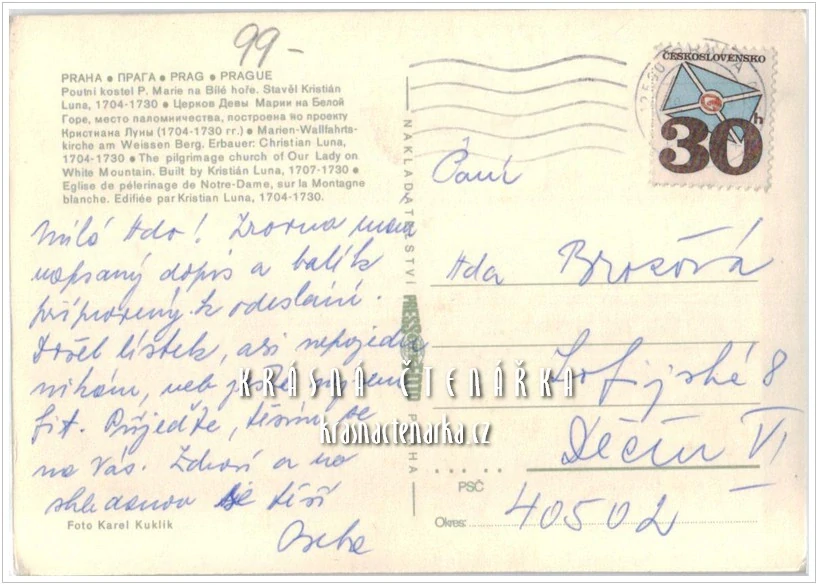 99-
PRAHA ● ПРАГА ● PRAG ● PRAGUE
Poutní kostel P. Marie na Bílé hoře. Stavěl Kristián
Luna, 1704-1730 ● Церков Девы Марии на Белой
Горе, место паломничества, построена по проекту
Кристиана Луны (1704-1730 гг.) ● Marien-Wallfahrts-
kirche am Weissen Berg. Erbauer: Christian Luna,
1704-1730 ● The pilgrimage church of Our Lady on
White Mountain. Built by Kristián Luna, 1707-1730 ●
Eglise de pélerinage de Notre-Dame, sur la Montagne
blanche. Edifiée par Kristian Luna, 1704-1730.
Milá Ado! Zrovna mám
napsaný dopis a balík
připravený k odeslání.
Došel lístek, asi nepojedu
nikam, neb ještě nejsem
fit. Přijeďte, těším se
na Vás. Zdraví a na
shledanou se těší
Foto Karel Kuklík
NAKLADATELSTVÍ
PRAHA
ČESKOSLOVENSKO
30h
Paní
Ada Brožová
Žofijská 8
Děčín VI
PSČ
40502
Okres:
KRÁSNÁ ČTENÁŘKA
krasnactenarka.cz